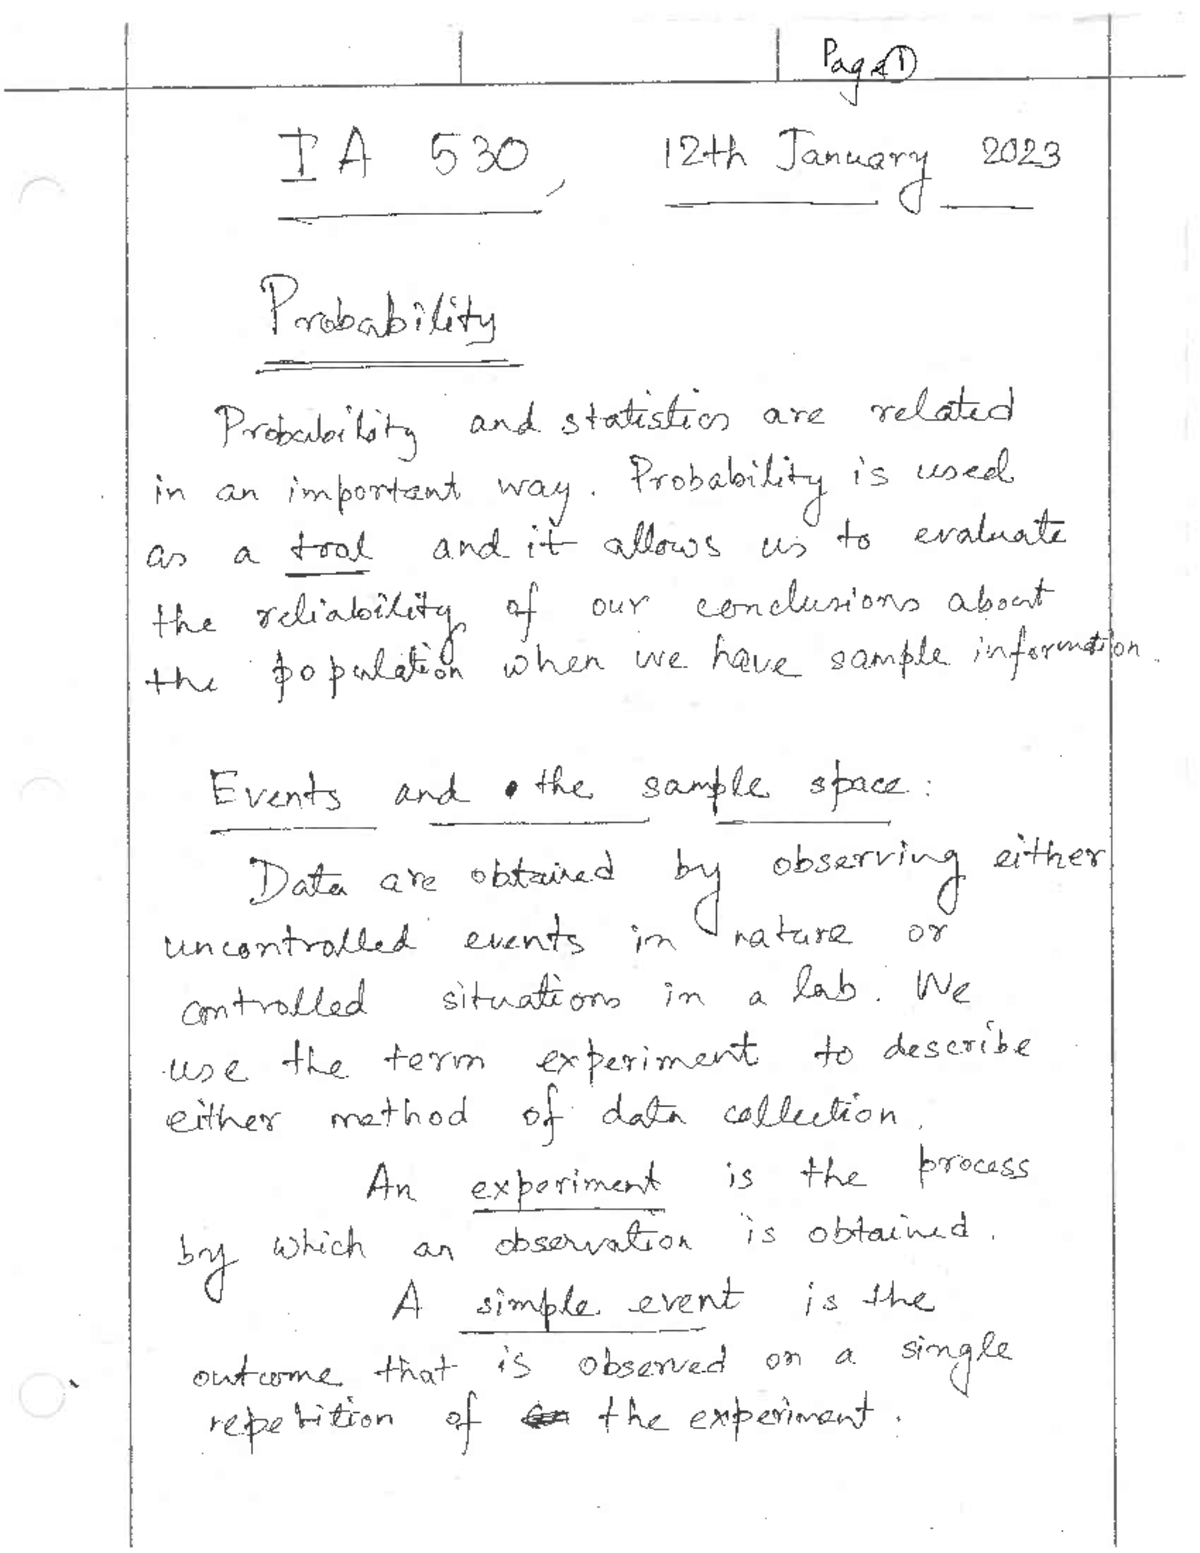 Page ①
IA 530, 12th January 2023
Probability
Probability and statistics are related
in an important way. Probability is used
as a tool and it allows us to evaluate
the reliability of our conclusions about
the population when we have sample information.
Events and the sample space:
Data are obtained by observing either
uncontrolled events in nature or
controlled situations in a lab. We
use the term experiment to describe
either method of data collection.
An experiment is the process
by which an observation is obtained.
A simple event is the
outcome that is observed on a single
repetition of the experiment.